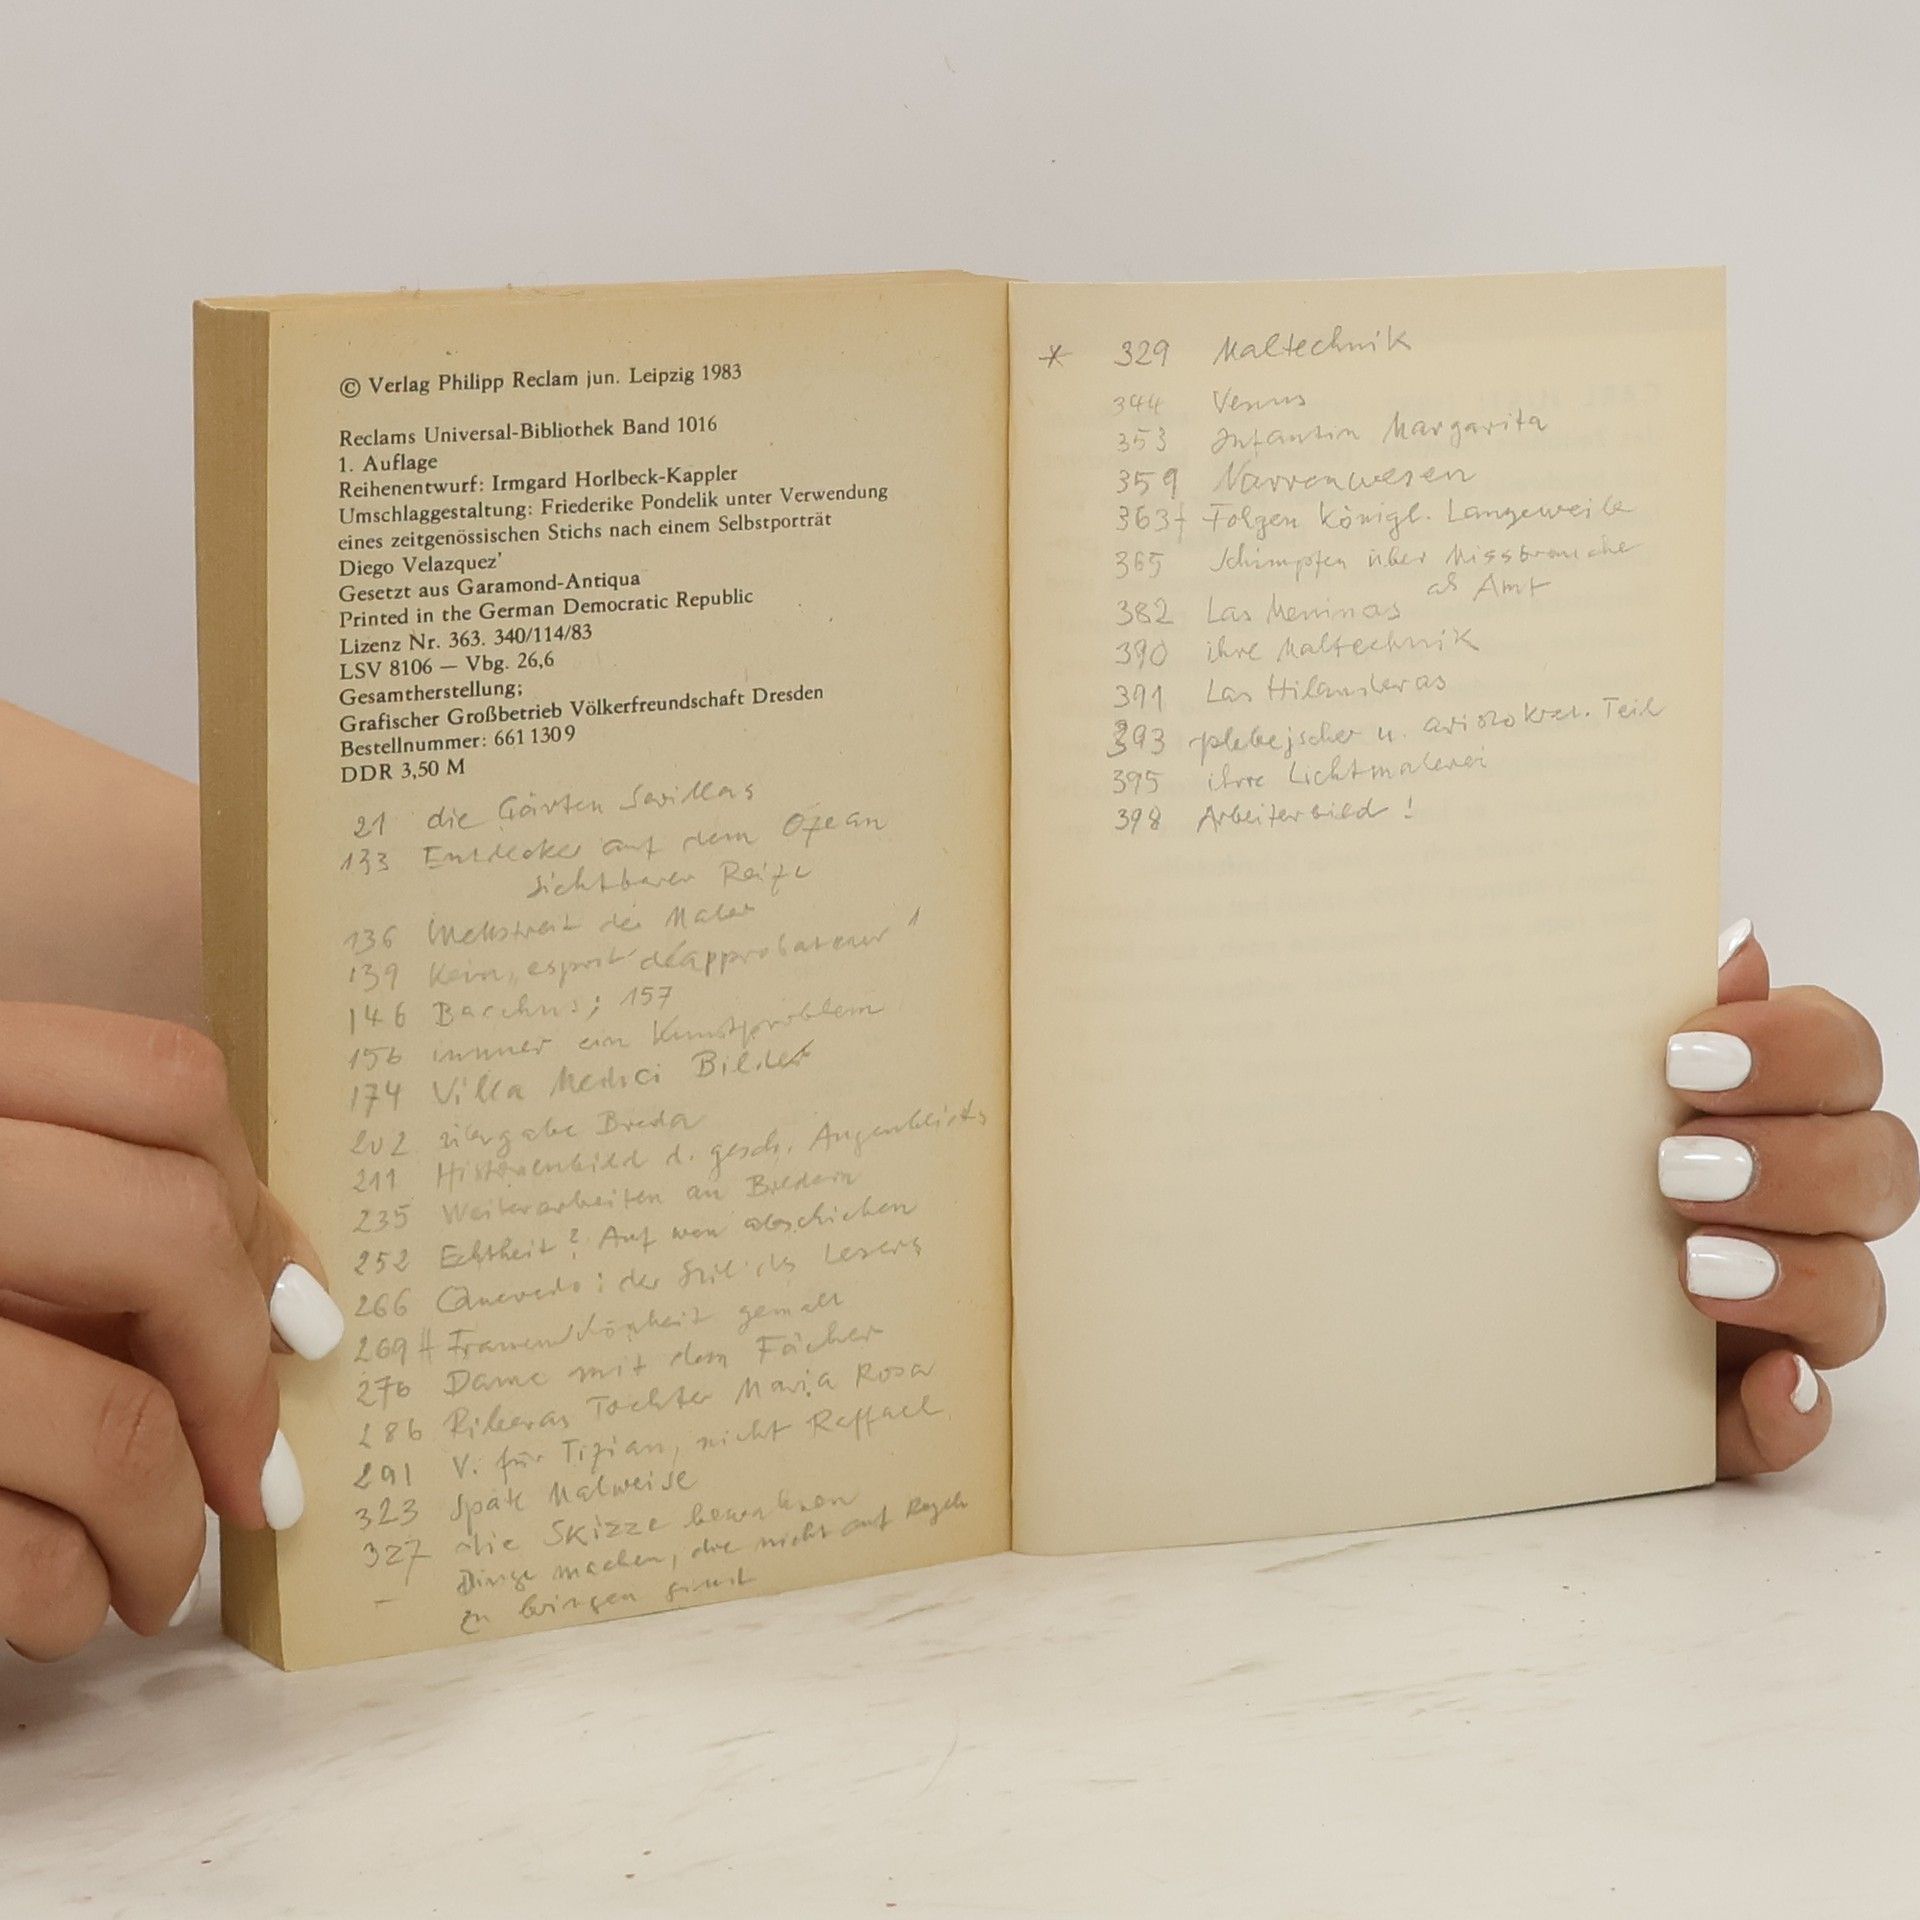 © Verlag Philipp Reclam jun. Leipzig 1983
Reclams Universal-Bibliothek Band 1016
1. Auflage
Reihenentwurf: Irmgard Horlbeck-Kappler
Umschlaggestaltung: Friederike Pondelik unter Verwendung
eines zeitgenössischen Stichs nach einem Selbstporträt
Diego Velazquez'
Gesetzt aus Garamond-Antiqua
Printed in the German Democratic Republic
Lizenz Nr. 363. 340/114/83
LSV 8106 — Vbg. 26,6
Gesamtherstellung;
Grafischer Großbetrieb Völkerfreundschaft Dresden
Bestellnummer: 661 130 9
DDR 3,50 M
21 die Gärten Sevillas
133 Entdecker auf dem Ozean
sichtbarer Reize
136 Wettstreit der Maler
139 Kein „esprit
146 Bacchus; 157
156 immer ein Kunstproblem
174 Villa Medici Bilder
202 Übergabe Breda
211 Historienbild d. gesch. Augenblicks
235 Weiterarbeiten an Bildern
252 Echtheit? Auf wen abschieben
266 Quevedo: der Stil des Lesers
269 Frauenschönheit gemalt
276 Dame mit dem Fächer
286 Riberas Tochter Maria Rosa
291 V. für Tizian, nicht Raffael
323 Späte Malweise
327 die Skizze bewahren
Dinge machen, die nicht auf Regeln
zu bringen sind
* 329 Maltechnik
344 Venus
353 Infantin Margarita
359 Narrenwesen
363f Folgen königl. Langeweile
365 Schimpfen über Missbräuche
als Amt
382 Las Meninas
390 ihre Maltechnik
391 Las Hilanderas
393 plebejscher u. aristokrat. Teil
395 ihre Lichtmalerei
398 Arbeiterbild!